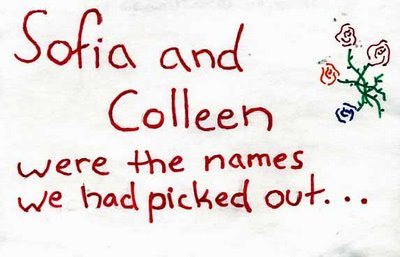 Sofia and
Colleen
were the names
we had picked out...